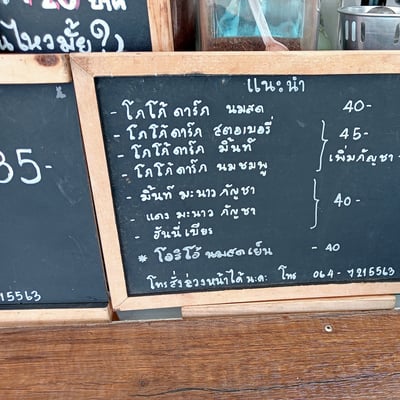 นไหวมั้ย?
35-
15563
แนะนำ
- โกโก้ ดาร์ก นมสด 40-
- โกโก้ ดาร์ก สตอเบอรี่
- โกโก้ ดาร์ก มิ้นท์
- โกโก้ ดาร์ก นมชมพู
45-
เพิ่มกัญชา
- มิ้นท์ มะนาว กัญชา
- แดง มะนาว กัญชา
- ฮันนี่เบียร
40-
* โอริโอ้ นมสดเย็น - 40
โทรสั่งล่วงหน้าได้นะคะ โทร 064-7215563